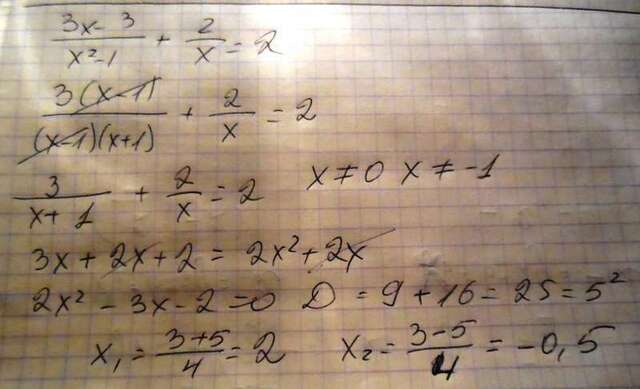 (3x-3)/(x²-1) + 2/x = 2
3(x-1)/((x-1)(x+1)) + 2/x = 2
3/(x+1) + 2/x = 2 x≠0 x≠-1
3x + 2x + 2 = 2x² + 2x
2x² - 3x - 2 = 0 D = 9 + 16 = 25 = 5²
x₁ = (3+5)/4 = 2 x₂ = (3-5)/4 = -0,5